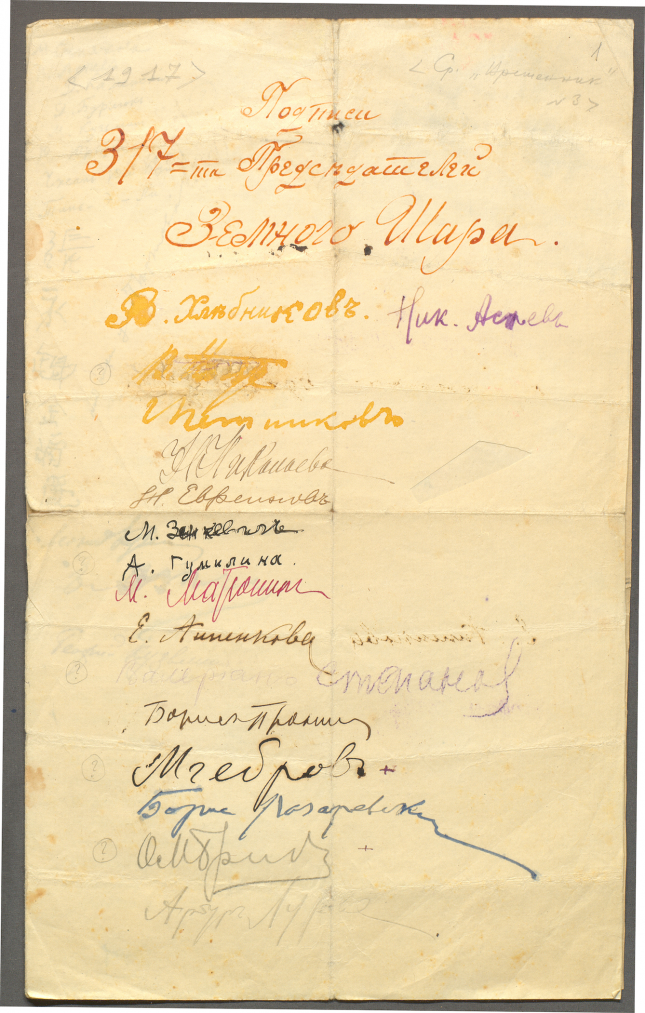 1
<1917>
<Ср. "Временник" №3>
Подписи
317=ти Председателей
Земного Шара.
В. Хлѣбниковъ. Ник. Асеевъ
(?)
Петниковъ
Николаева
Н. Евреиновъ
М. Зенкевичъ
(?)
А. Гумилина.
М. Матюшин
Е. Липенкова
(?) Валерьянъ Степанов
Борисъ Пронин
(?) Мгебровъ +
Борис Лазаревский
(?) О. Бриг +
Артур Лурье